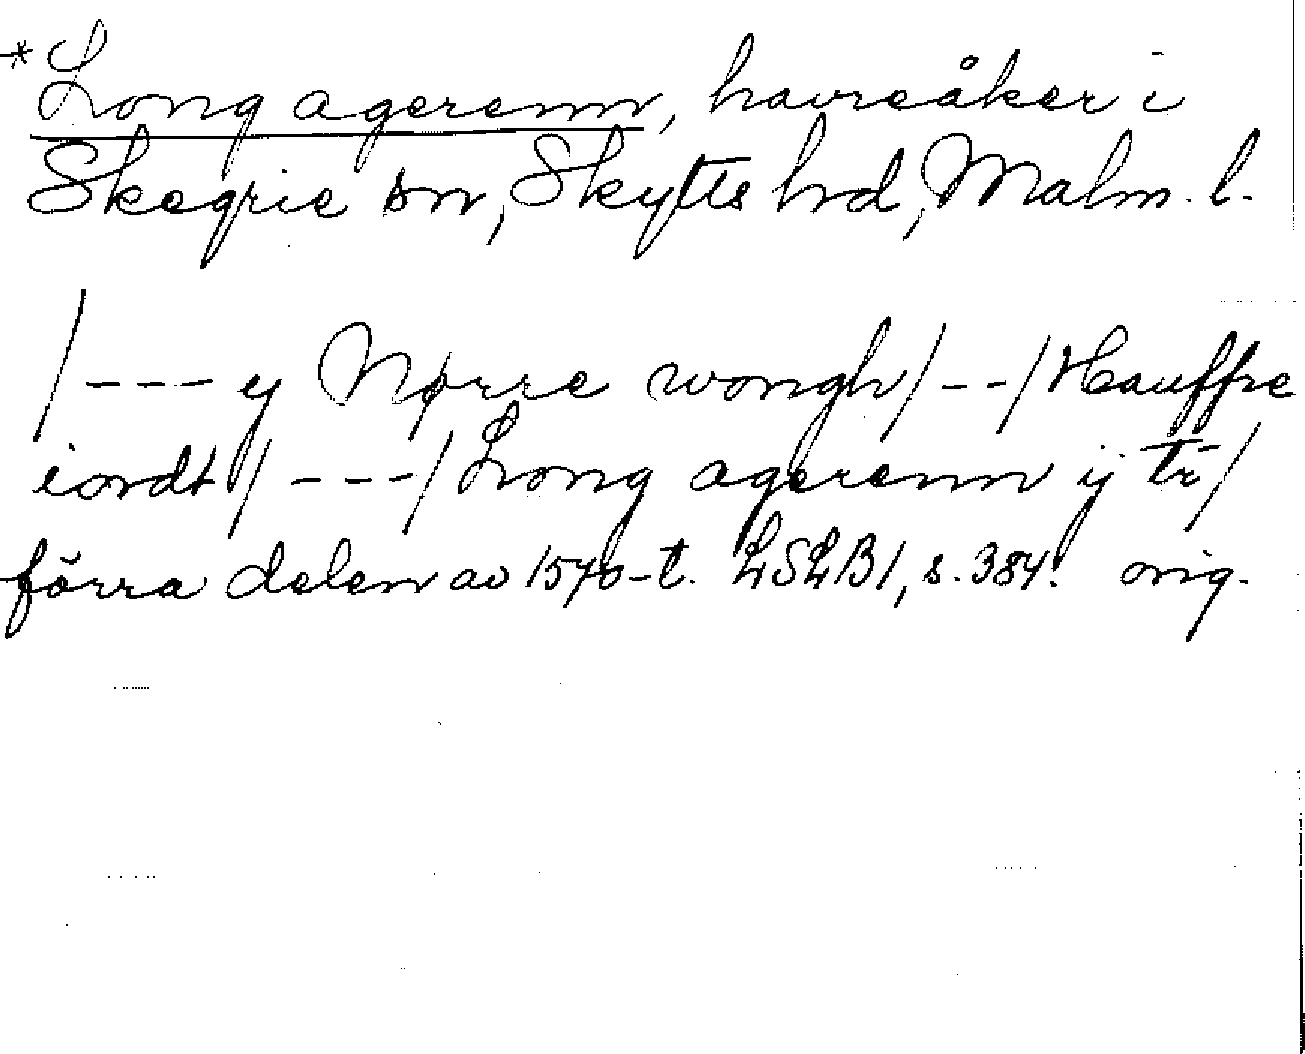 *Long agerenn, havreåker i
Skegrie sn, Skytts hrd, Malm. l.
/--- y Nørre wongh/--/Hauffre
iordt/---/Long agerenn ij tr/
förra delen av 1570-t. LSLB1, s. 384. orig.